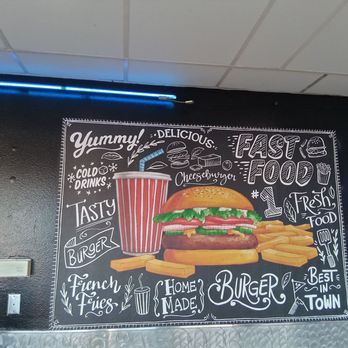 Yummy!
DELICIOUS
FAST
FOOD
COLD
DRINKS
Cheeseburger
#1
Fresh
FOOD
TASTY
BURGER
French
Fries
HOME
MADE
BURGER
BEST
IN
TOWN